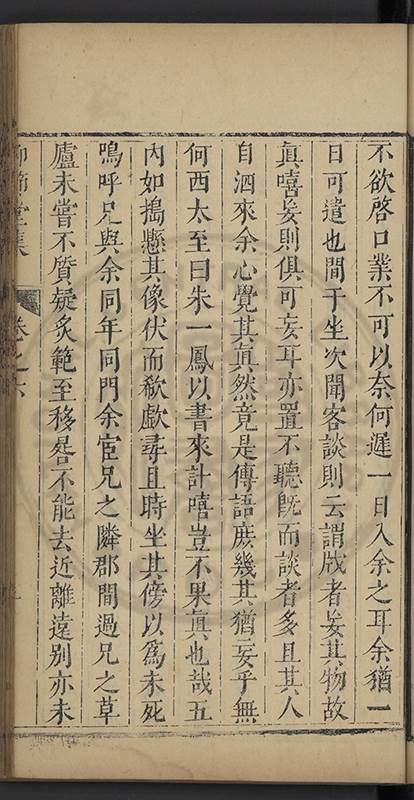 不欲啓口業不可以奈何遲一日入余之耳余猶一
日可遣也間于坐次聞客談則云謂戕者妄其物故
眞嘻妄則俱可妄耳亦置不聽旣而談者多且其人
自泗來余心覺其眞然竟是傳語庶幾其猶妄乎無
何西太至曰朱一鳳以書來計嘻豈不果眞也哉五
內如搗懸其像伏而欷歔尋且時坐其傍以爲未死
嗚呼兄與余同年同門余宦兄之隣郡間過兄之草
廬未嘗不質疑炙範至移晷不能去近離遠别亦未
節堂集
卷之六